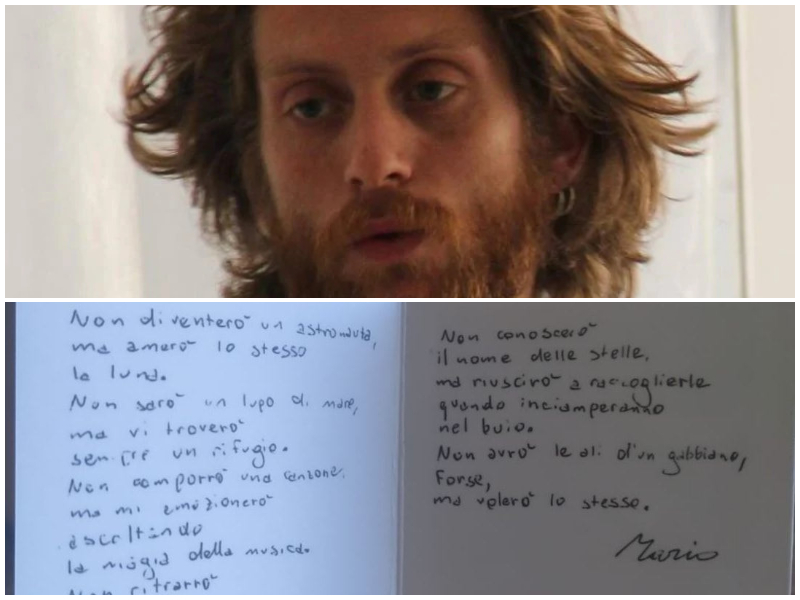 Non diventerò un astronauta,
ma amerò lo stesso
la luna.
Non sarò un lupo di mare,
ma vi troverò
sempre un rifugio.
Non comporrò una canzone,
ma mi emozionerò
ascoltando
la magia della musica.
Non ritrarrò
Non conoscerò
il nome delle stelle,
ma riuscirò a raccoglierle
quando inciamperanno
nel buio.
Non avrò le ali d'un gabbiano,
Forse,
ma volerò lo stesso.
Mario